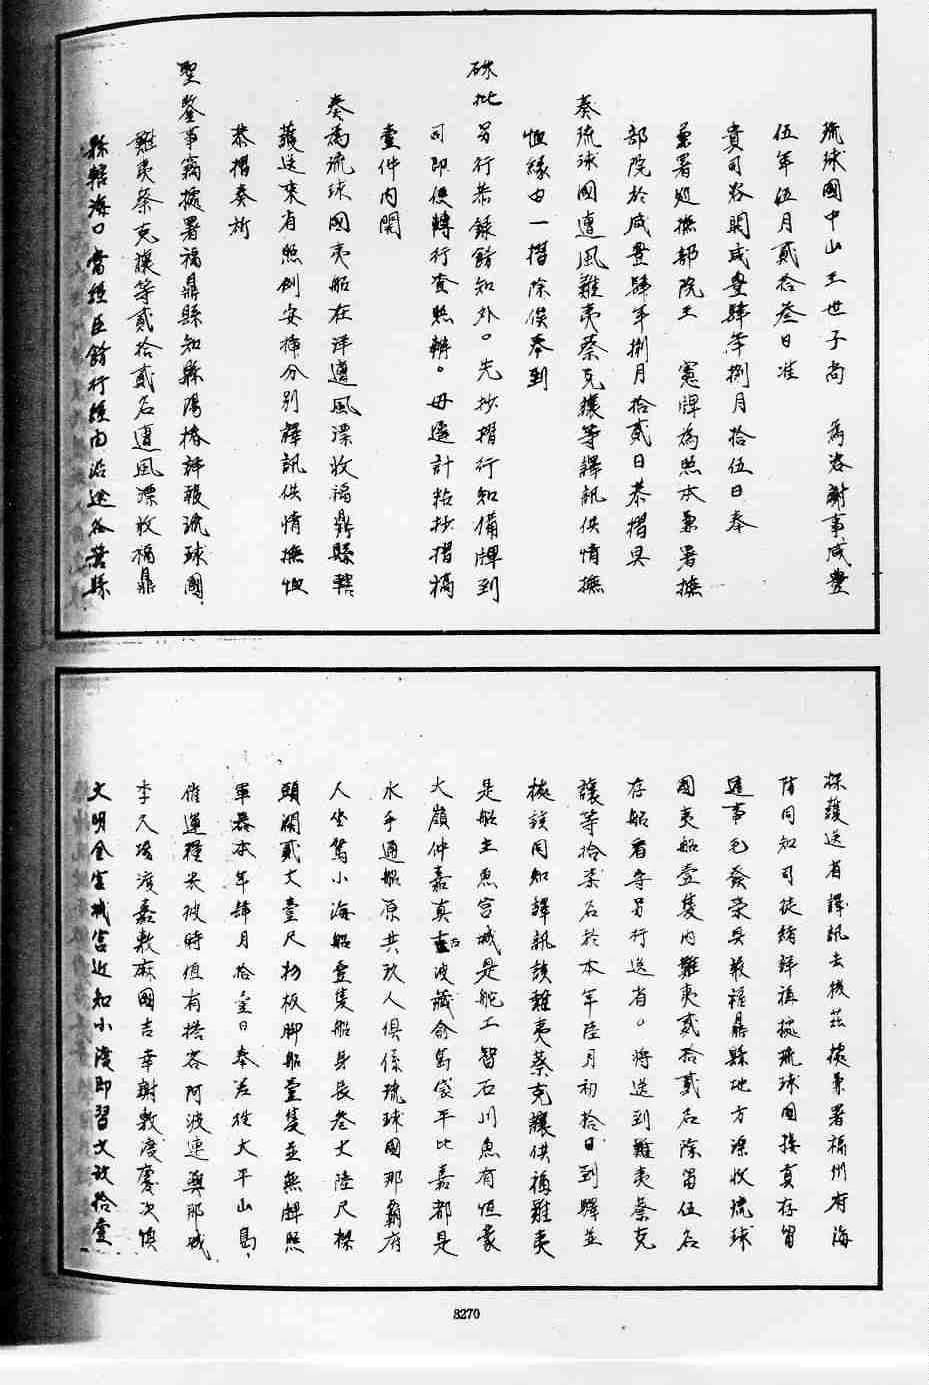 琉球國中山王世子尚　為咨謝事咸豐
伍年伍月貳拾叁日准
貴司咨開咸豐肆年捌月拾伍日奉
兼署廵撫部院王　憲牌為照本兼署撫
部院於咸豐肆年捌月拾貳日恭摺具
奏琉球國遭風難夷蔡克讓等譯訊供情撫
恤緣由一摺除俟奉到
硃批另行恭錄飭知外。先抄摺行知備牌到
司即便轉行查照辦。毋違計粘抄摺稿
壹件內開
奏為琉球國夷船在洋遭風漂收福鼎縣轄
護送來省照例安揷分別譯訊供情撫恤
恭摺奏祈
聖鑒事竊據署福鼎縣知縣馮椿詳報琉球國
難夷蔡克讓等貳拾貳名遭風漂收福鼎
縣轄海口當經臣飭行經由沿途各營縣
探護送省譯訊去後茲據兼署福州府海
防同知司徒緒詳據琉球國接貢存留
通事毛發榮具報福鼎縣地方漂收琉球
國夷船壹隻內難夷貳拾貳名除留伍名
存船看守另行送省。將送到難夷蔡克
讓等拾柒名於本年陸月初拾日到驛並
據該同知譯訊該難夷蔡克讓供稱難夷
是船主魚宮城是舵工智石川魚有恒蒙
大嶺仲嘉真古波藏俞萬袋平比嘉都是
水手通船原共玖人俱係琉球國那霸府
人坐駕小海船壹隻船身長叁丈陸尺樑
頭闊貳丈壹尺杉板脚船壹隻並無牌照
軍器本年肆月拾壹日奉差往大平山島
催運糧米彼時值有搭客阿波連與那城
李久場渡嘉敷麻國吉幸謝敷渡慶次慎
文明金宮城宮近知小渡即習文故拾壹
8270